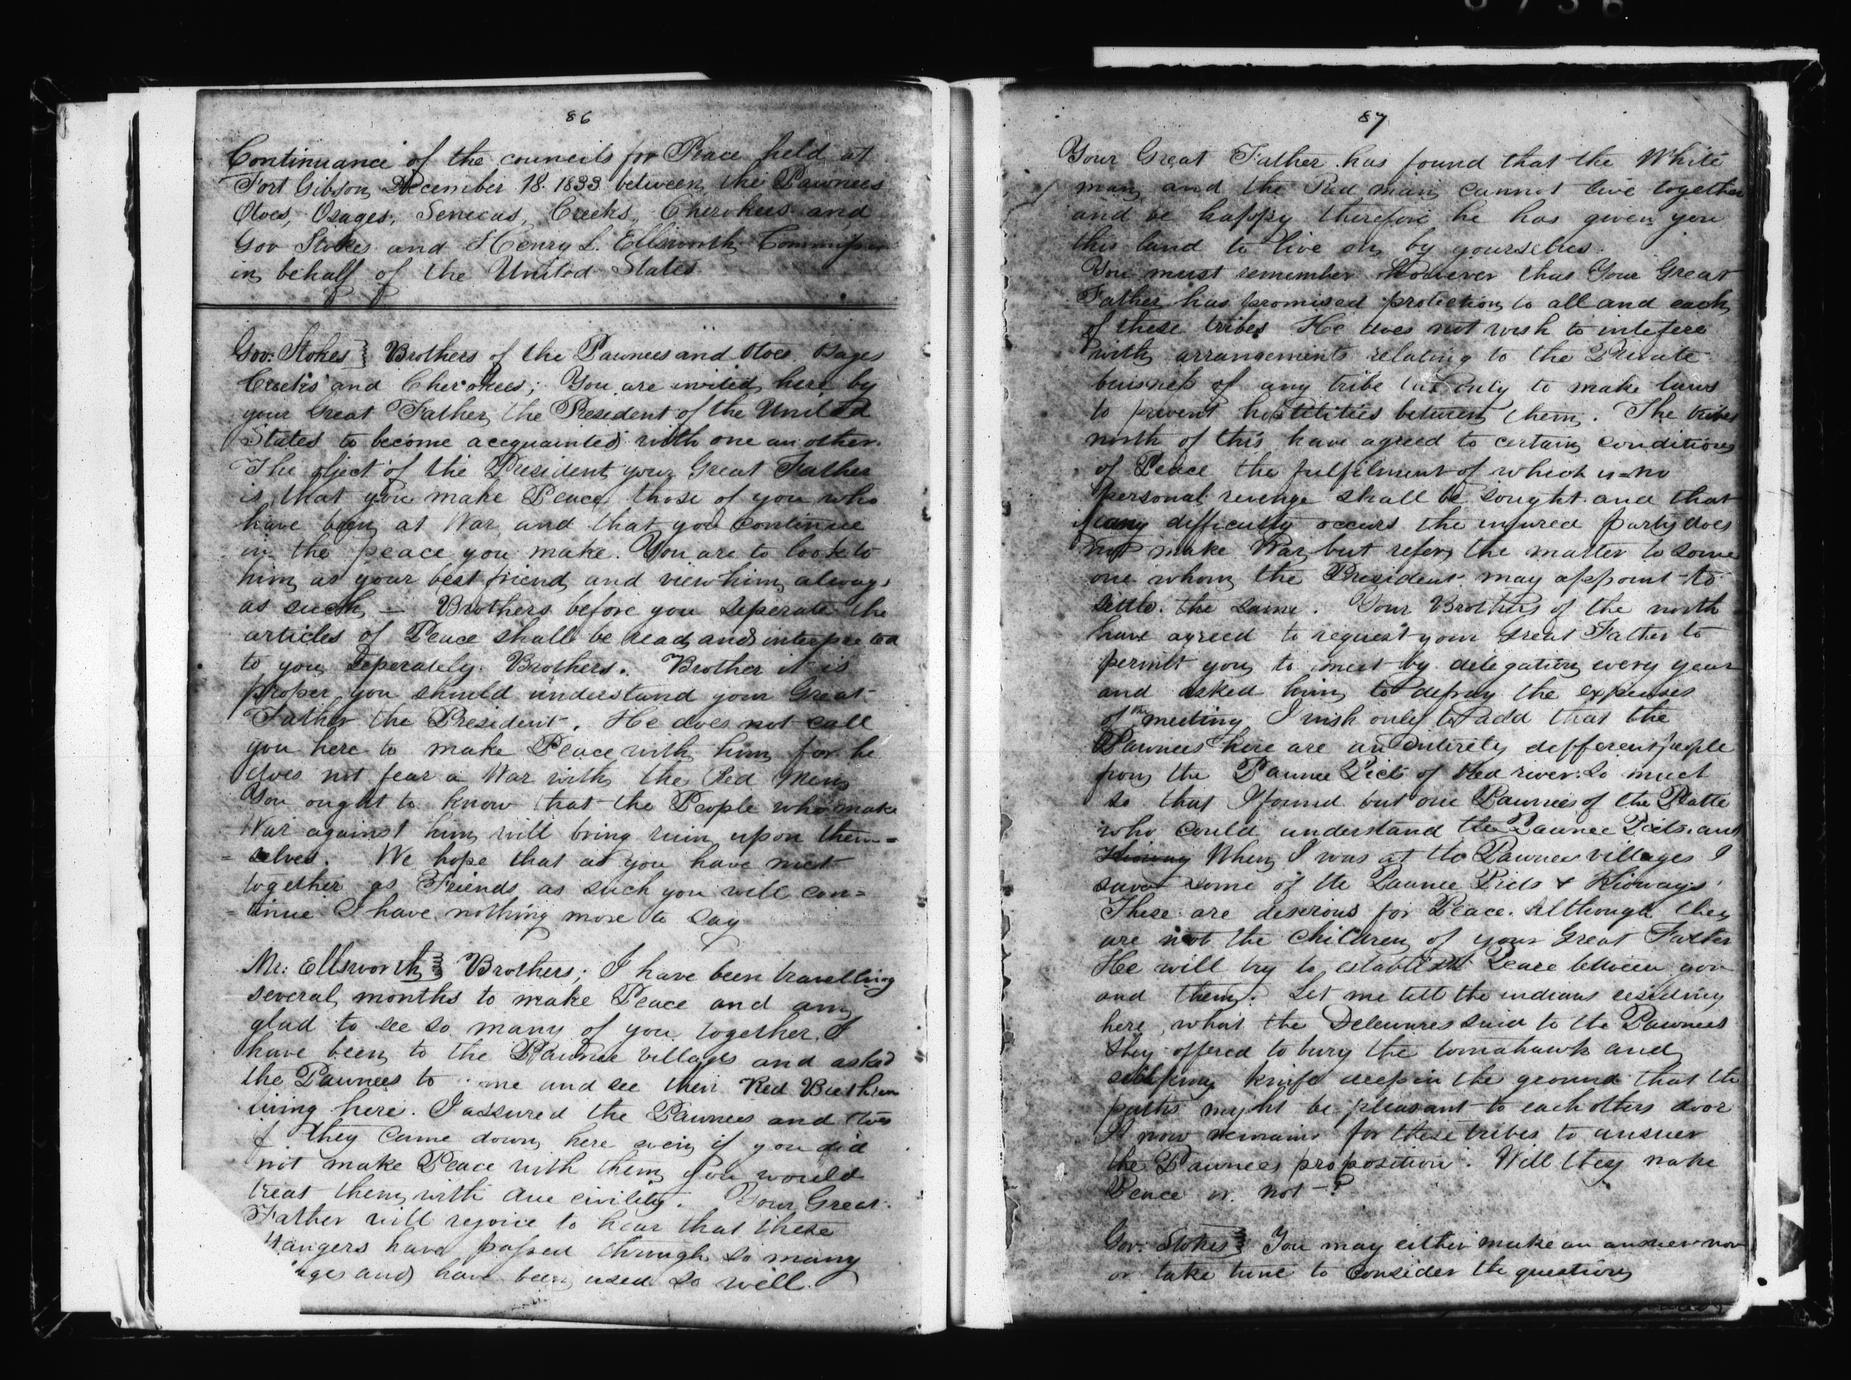 86
Continuance of the councils for Peace held at
Fort Gibson December 18. 1833 between the Pawnees
Otoes, Osages, Senecas, Creeks, Cherokees and
Gov Stokes and Henry L. Ellsworth Commissn
in behalf of the United States
Gov: Stokes } Brothers of the Pawnees and Otoes, Osages
Creeks and Cherokees; You are invited here by
your Great Father the President of the United
States to become acequainted with one an other.
The object of the President your Great Father
is, that you make Peace, those of you who
have been at War and that you continue
in the peace you make. You are to look to
him as your best friend and view him always
as such — Brothers before you seperate the
articles of Peace shall be read and interpreted
to you seperately. Brothers. Brother it is
proper you should understand your Great
Father the President. He does not call
you here to make Peace with him for he
does not fear a War with the Red Men
You ought to know that the People who make
War against him will bring ruin upon them=
=selves. We hope that as you have met
together as Friends as such you will con=
=tinue I have nothing more to say
Mr: Ellsworth } Brothers; I have been travelling
several months to make Peace and am
glad to see so many of you together. I
have been to the Pawnee villages and asked
the Pawnees to me and see their Red Brethren
living here. I assured the Pawnees and Otoes
if they came down here even if you did
not make Peace with them you would
treat them with due civility. Your Great
Father will rejoice to hear that these
strangers have passed through so many
ages and have been used so well.
87
Your Great Father has found that the White
man and the Red man cannot live together
and be happy therefore he has given you
this land to live on by yourselves.
You must remember However that Your Great
Father has promised protection to all and each
of these tribes He does not wish to intefere
with arrangements relating to the Private
buisness of any tribe but only to make laws
to prevent hostilities between them. The tribes
north of this have agreed to certain conditions
of Peace the fulfilment of which is no
personal revenge shall be sought and that
if any difficulty occurs the injured party does
not make War but refers the matter to some
one whom the President may appoint to
settle the same. Your Brothers of the north
have agreed to request your Great Father to
permit you to meet by delegation every year
and asked him to defray the expenses
of the meeting I wish only to add that the
Pawnees here are an entirely defferent people
from the Pawnee Picts of Red river: So much
so that I found but one Pawnees of the Platte
who could understand the Pawnee Picts and
When I was at the Pawnee villages I
saw some of the Pawnee Picts & Kioways
These are desirous for Peace. Although they
are not the children of your Great Father
He will try to establish Peace between you
and them. Let me tell the indians residing
here, what the Delewares said to the Pawnees
they offered to bury the tomahawk and
scalping knife deep in the ground that the
paths might be pleasant to each others door
It now remains for these tribes to answer
the Pawnees proposition. Will they make
Peace or not—?
Gov: Stokes } You may either make an answer now
or take time to consider the question